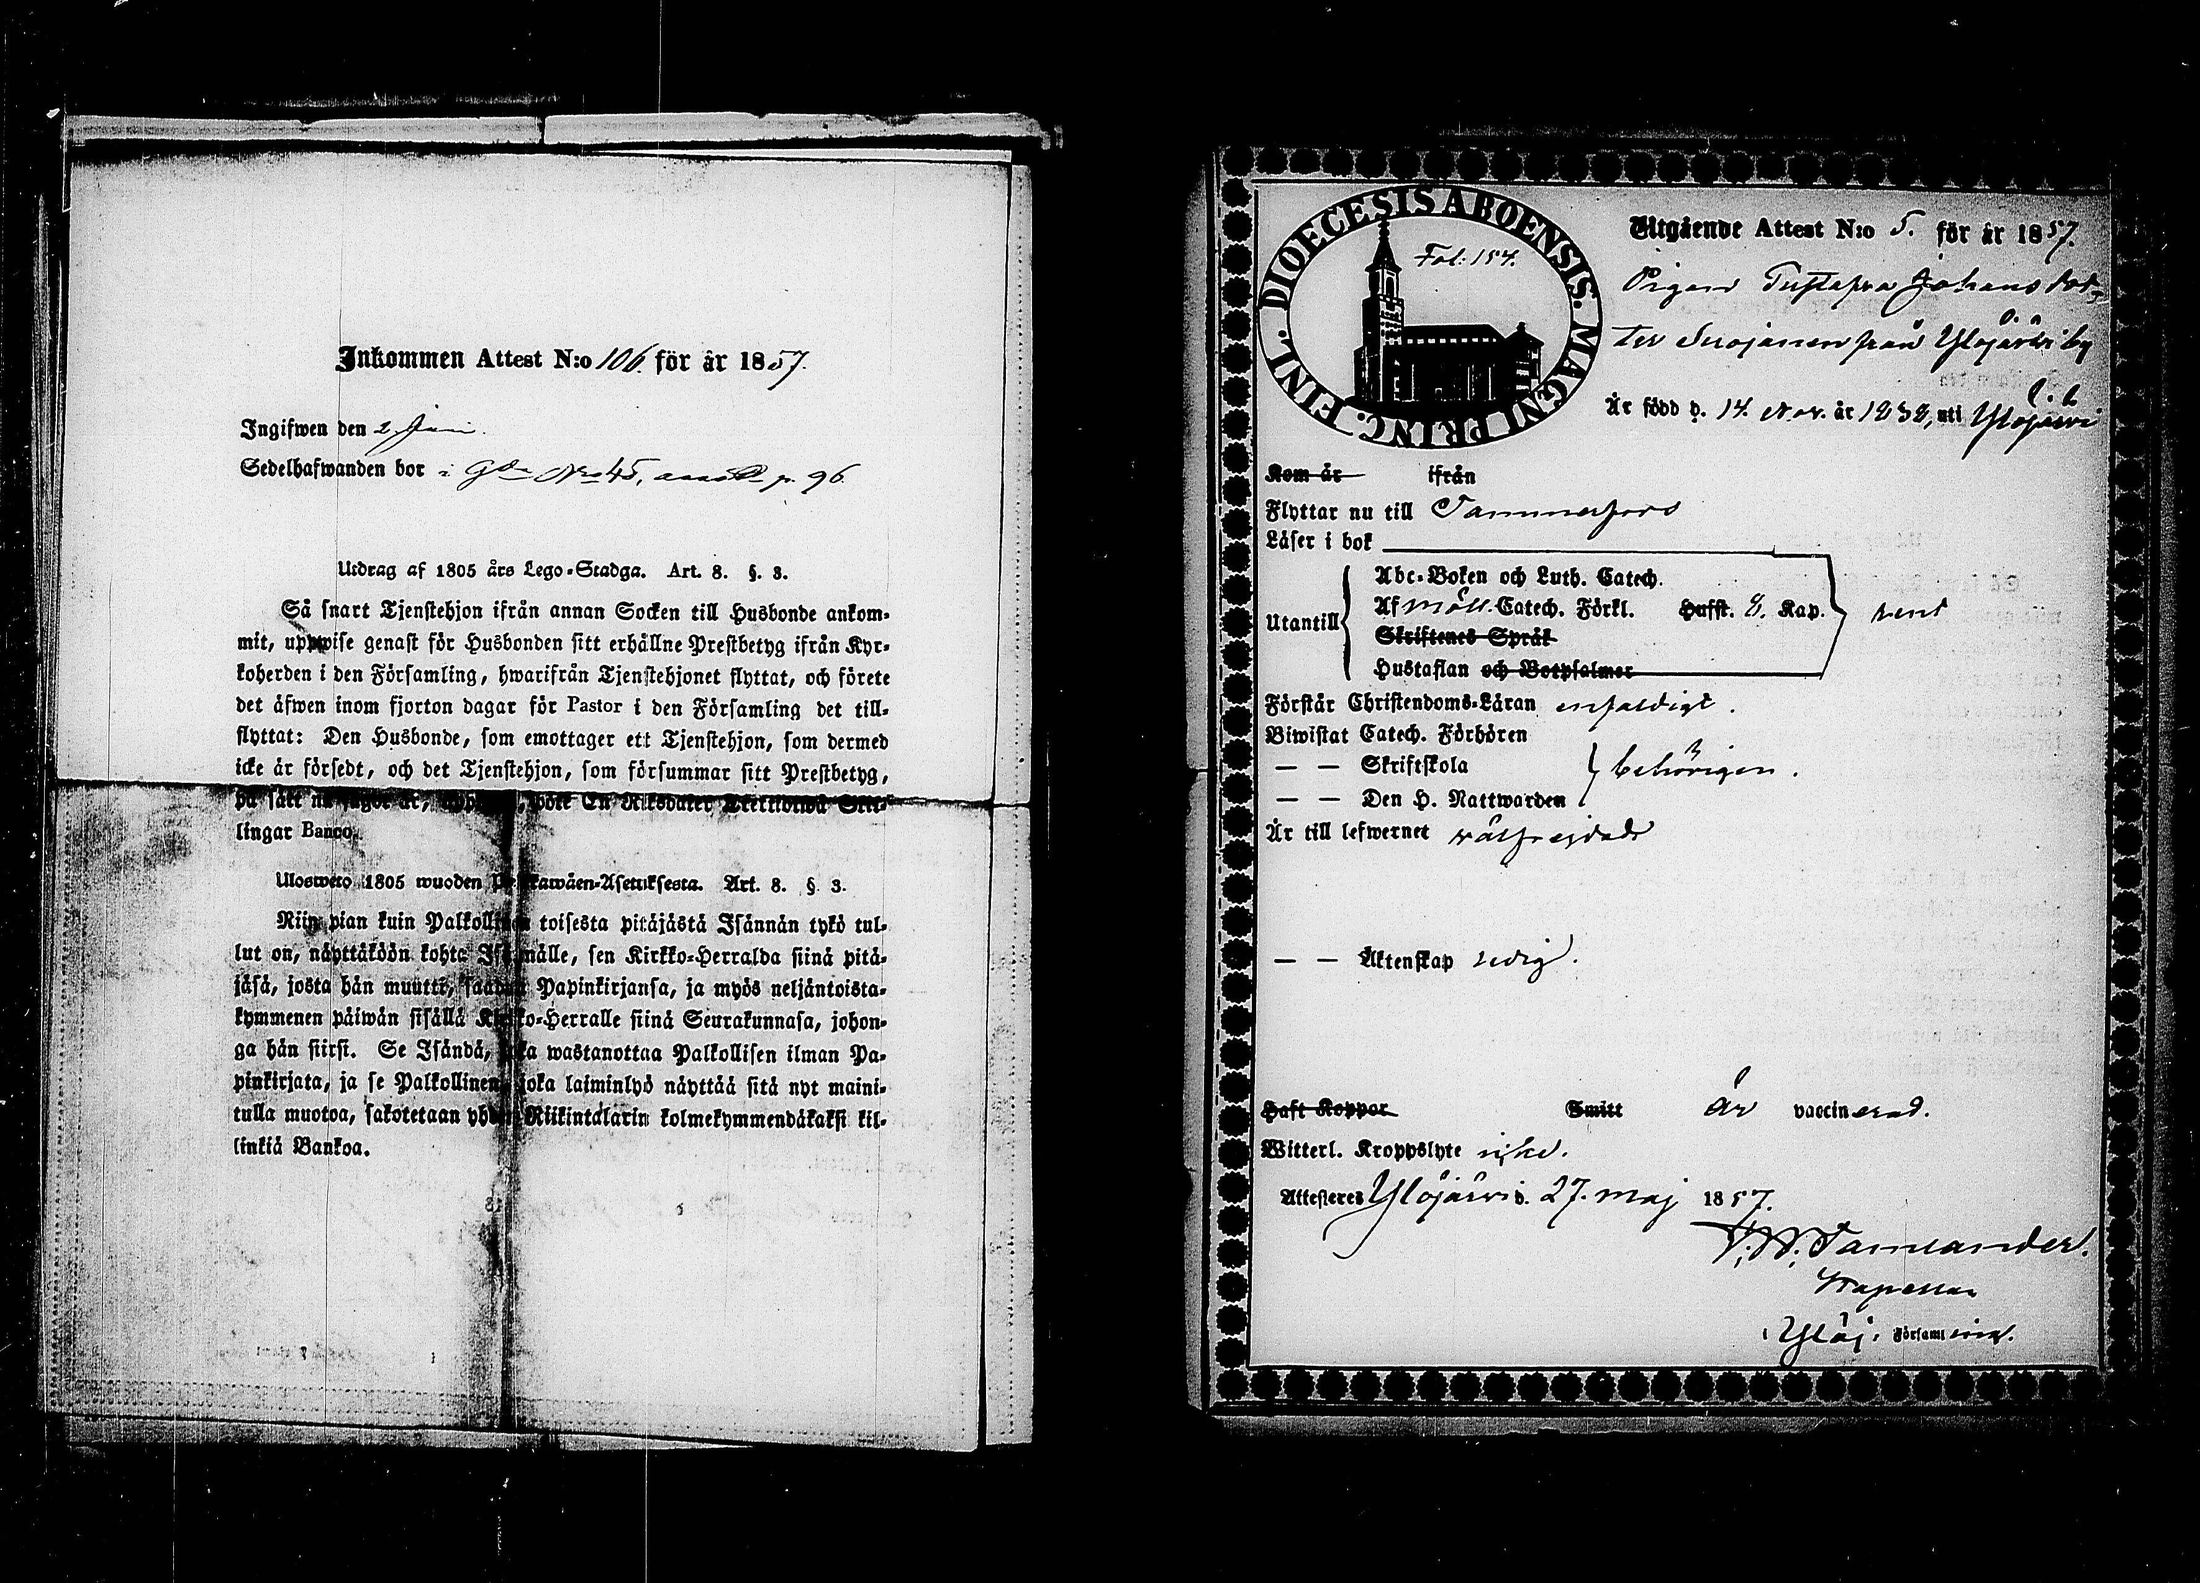 Inkommen Attest N:o 106. för år 1857.
Ingifwen den 2 Juni.
Sedelhafwanden bor i Gdn No 45, p. 96.
Utdrag af 1805 års Lego-Stadga. Art. 8. §. 3.
Så snart Tjenstehjon ifrån annan Socken till Husbonde ankom-
mit, uppwise genast för Husbonden sitt erhållne Prestbetyg ifrån Kyr-
koherden i den Församling, hwarifrån Tjenstehjonet flyttat, och förete
det äfwen inom fjorton dagar för Pastor i den Församling det till-
flyttat: Den Husbonde, som emottager ett Tjenstehjon, som dermed
icke är försedt, och det Tjenstehjon, som försummar sitt Prestbetyg,
på sätt nu sagdt är, böte En Riksdaler Trettiotwå Skil-
lingar Banco.
Uloswеto 1805 wuoden Asetuksesta. Art. 8. § 3.
Niin pian kuin Palkollinen toisesta pitäjästä Isännän tykö tul-
lut on, näyttäköön kohta Isännälle, sen Kirkko-Herralda siinä pitä-
jäsä, josta hän muutti, saadun Papinkirjansa, ja myös neljäntoista-
kymmenen päiwän sisällä Kirkko-Herralle siinä Seurakunnasa, johon-
ga hän siirsi. Se Isändä, joka wastanottaa Palkollisen ilman Pa-
pinkirjata, ja se Palkollinen, joka laiminlyö näyttää sitä nyt maini-
tulla muotoa, sakotetaan yhden Riikintalarin kolmekymmendäkaksi kil-
linkiä Bankoa.
DIOECESIS ABOENSIS. MAGNI PRINC. FINL.
Fol: 154.
Utgående Attest N:o 5. för år 1857.
Pigan Gustafva Johansdot-
ter Seväjanen från Ylöjärvi by
Är född d. 14. Nov. år 1838, uti Ylöjärvi
Kom år ifrån
Flyttar nu till Tammerfors
Läser i bok
Utantill
Abc-Boken och Luth. Catech.
Af Möll. Catech. Förkl. Hufst. 8. Kap.
Skriftenes Språk
Hustaflan och Botpsalmer
rent
Förstår Christendoms-Läran enfaldigt.
Biwistat Catech. Förhören
— — Skriftskola
— — Den H. Nattwarden
behörigen.
Är till lefwernet wälfrejdad
— — Äktenskap ledig.
Haft Koppor Smitt är vaccinerad.
Witterl. Kroppslyte icke.
Attesteres Ylöjärwi d. 27. maj 1857.
Kapellan
i Ylöj. Församling.